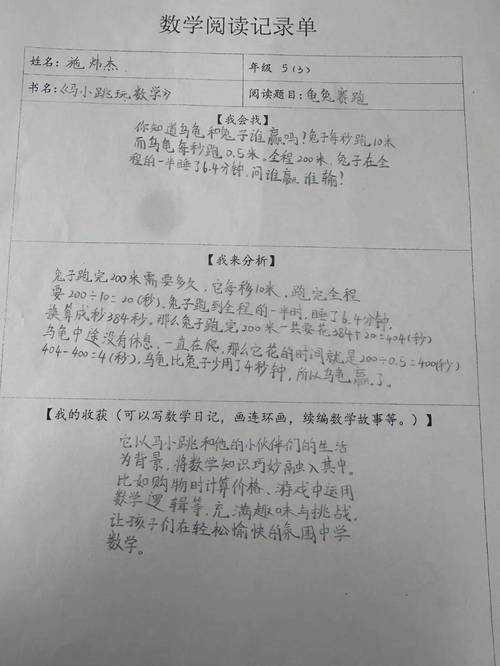 数学阅读记录单
姓名：施炜杰
年级 5(3)
书名：《马小跳玩数学》
阅读题目：龟兔赛跑
【我会找】
你知道乌龟和兔子谁赢吗？兔子每秒跑10米
而乌龟每秒跑0.5米。全程200米，兔子在全
程的一半睡了6.4分钟，问谁赢谁输？
【我来分析】
兔子跑完200米需要多久，它每秒10米，跑完全程
要200÷10=20(秒)。兔子跑到全程的一半时，睡了6.4分钟，
换算成秒384秒。那么兔子跑完200米一共要花384+20=404(秒)
乌龟中途没有休息，一直在爬，那么它花的时间就是200÷0.5=400(秒)
404-400=4(秒)，乌龟比兔子少用了4秒钟，所以乌龟赢了。
【我的收获（可以写数学日记，画连环画，续编数学故事等。）】
它以马小跳和他的小伙伴们的生活
为背景，将数学知识巧妙融入其中。
比如购物时计算价格、游戏中运用
数学逻辑等，充满趣味与挑战，
让孩子们在轻松愉快的氛围中学
数学。